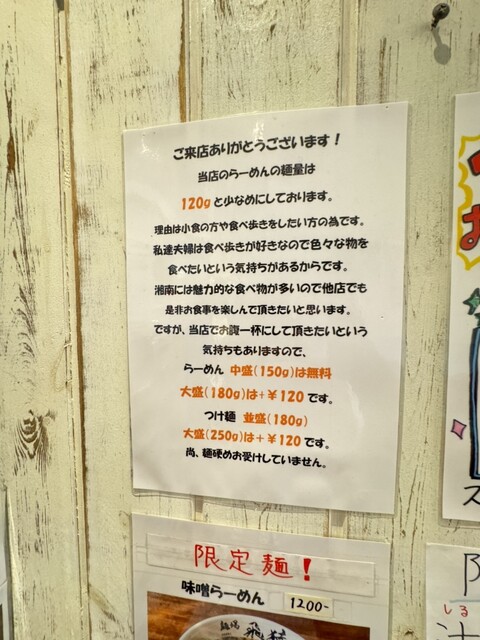 ご来店ありがとうございます！
当店のらーめんの麺量は
120gと少なめにしております。
理由は小食の方や食べ歩きをしたい方の為です。
私達夫婦は食べ歩きが好きなので色々な物を
食べたいという気持ちがあるからです。
湘南には魅力的な食べ物が多いので他店でも
是非お食事を楽しんで頂きたいと思います。
ですが、当店でお腹一杯にして頂きたいという
気持ちもありますので、
らーめん 中盛(150g)は無料
大盛(180g)は+￥120です。
つけ麺 並盛(180g)
大盛(250g)は+￥120です。
尚、麺硬めお受けしていません。
限定麺！
味噌らーめん 1200-
しる